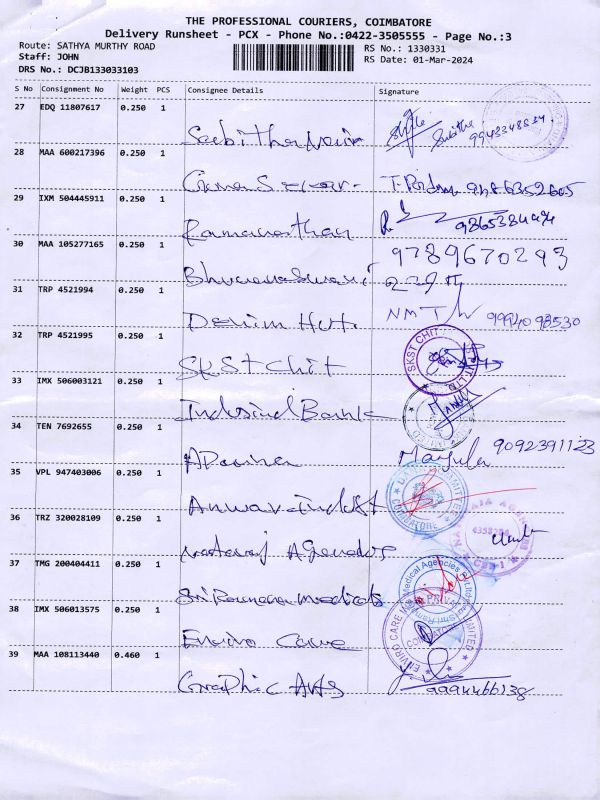 THE PROFESSIONAL COURIERS, COIMBATORE
Delivery Runsheet - PCX - Phone No.:0422-3505555 - Page No.:3
Route: SATHYA MURTHY ROAD
RS No.: 1330331
Staff: JOHN
RS Date: 01-Mar-2024
DRS No.: DCJB133033103
S No Consignment No Weight PCS Consignee Details Signature
27 EDQ 11807617 0.250 1
28 MAA 600217396 0.250 1
29 IXM 504445911 0.250 1
Ramanathan
30 MAA 105277165 0.250 1
9789670293
Bhuvaneswari
31 TRP 4521994 0.250 1
Denim Hut NMT
32 TRP 4521995 0.250 1
SKST CHIT
SKST Chit
33 IMX 506003121 0.250 1
Indusind Bank
34 TEN 7692655 0.250 1
9092391123
35 VPL 947403006 0.250 1
36 TRZ 320028109 0.250 1
Nataraj Agencies
37 TMG 200404411 0.250 1
Medical Agencies
38 IMX 506013575 0.250 1
ENVIRO CARE
Enviro Care
39 MAA 108113440 0.460 1
Graphic Arts 9994466138